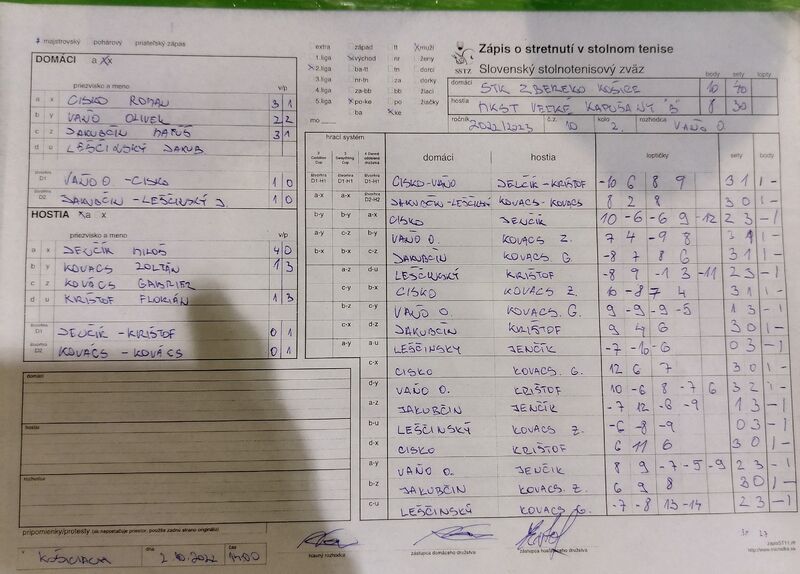 x majstrovský pohárový priateľský zápas
DOMÁCI a x
priezvisko a meno v/p
a x CISKO ROMAN 3 1
b y VAŇO OLIVER 2 2
c z JAKUBČIN MATÚŠ 3 1
d u LEŠČINSKÝ JAKUB
štvorhra D1 VAŇO O. - CISKO 1 0
štvorhra D2 JAKUBČIN - LEŠČINSKÝ J. 1 0
HOSTIA a x
priezvisko a meno v/p
a x JENČÍK MILOŠ 4 0
b y KOVACS ZOLTÁN 1 3
c z KOVÁCS GABRIEL
d u KRIŠTOF FLORIÁN 1 3
štvorhra D1 JENČÍK - KRIŠTOF 0 1
štvorhra D2 KOVÁCS - KOVÁCS 0 1
domáci
hostia
rozhodca
pripomienky/protesty (ak nepostačuje priestor, použite zadnú stranu originálu)
V KOŠICIACH dňa 2.10.2022 čas 14:00
extra západ tt x muži
1.liga x východ nr ženy
x 2.liga ba/tt tn dorci
3.liga nr-tn za dorky
4.liga za-bb bb žiaci
5.liga x po-ke po žiačky
mo ba x ke
SSTZ
Zápis o stretnutí v stolnom tenise
Slovenský stolnotenisový zväz
body sety lopty
domáci STK ZBEREKO KOŠICE 10 40
hostia MKST VEĽKÉ KAPUŠANY "B" 8 30
ročník 2022/2023 č.z. 10 kolo 2. rozhodca VAŇO O.
hrací systém
domáci hostia loptičky sety body
štvorhra D1-H1 štvorhra D1-H1 štvorhra D1-H1 CISKO-VAŇO JENČÍK-KRIŠTOF -10 6 8 9 3 1 1 -
štvorhra D2-H2 JAKUBČIN-LEŠČINSKÝ KOVACS-KOVACS 8 2 8 3 0 1 -
b-y b-y a-x CISKO JENČÍK 10 -6 -6 9 -12 2 3 - 1
a-y c-z b-y VAŇO O. KOVACS Z. 7 4 -9 8 3 1 1 -
b-x b-x c-z JAKUBČIN KOVACS G -8 7 8 6 3 1 1 -
a-z d-u LEŠČINSKÝ KRIŠTOF -8 9 -1 3 -11 2 3 - 1
c-y b-x CISKO KOVACS Z. 10 -8 7 4 3 1 1 -
b-z c-y VAŇO O. KOVACS G. 9 -9 -9 -5 1 3 - 1
c-x d-z JAKUBČIN KRIŠTOF 9 4 6 3 0 1 -
a-y a-u LEŠČINSKY JENČÍK -7 -10 -6 0 3 - 1
c-x CISKO KOVACS. G. 12 6 7 3 0 1 -
d-y VAŇO O. KRIŠTOF 10 -6 8 -7 6 3 2 1 -
a-z JAKUBČIN JENČÍK -7 12 -6 -9 1 3 - 1
b-u LEŠČINSKÝ KOVACS Z. -6 -8 -9 0 3 - 1
d-x CISKO KRIŠTOF 6 11 6 3 0 1 -
a-y VAŇO O. JENČÍK 8 9 -7 -5 -9 2 3 - 1
b-z JAKUBČIN KOVACS. Z. 6 9 8 3 0 1 -
c-u LEŠČINSKÝ KOVACS G. -7 -8 13 -14 2 3 - 1
hlavný rozhodca zástupca domáceho družstva zástupca hosťujúceho družstva